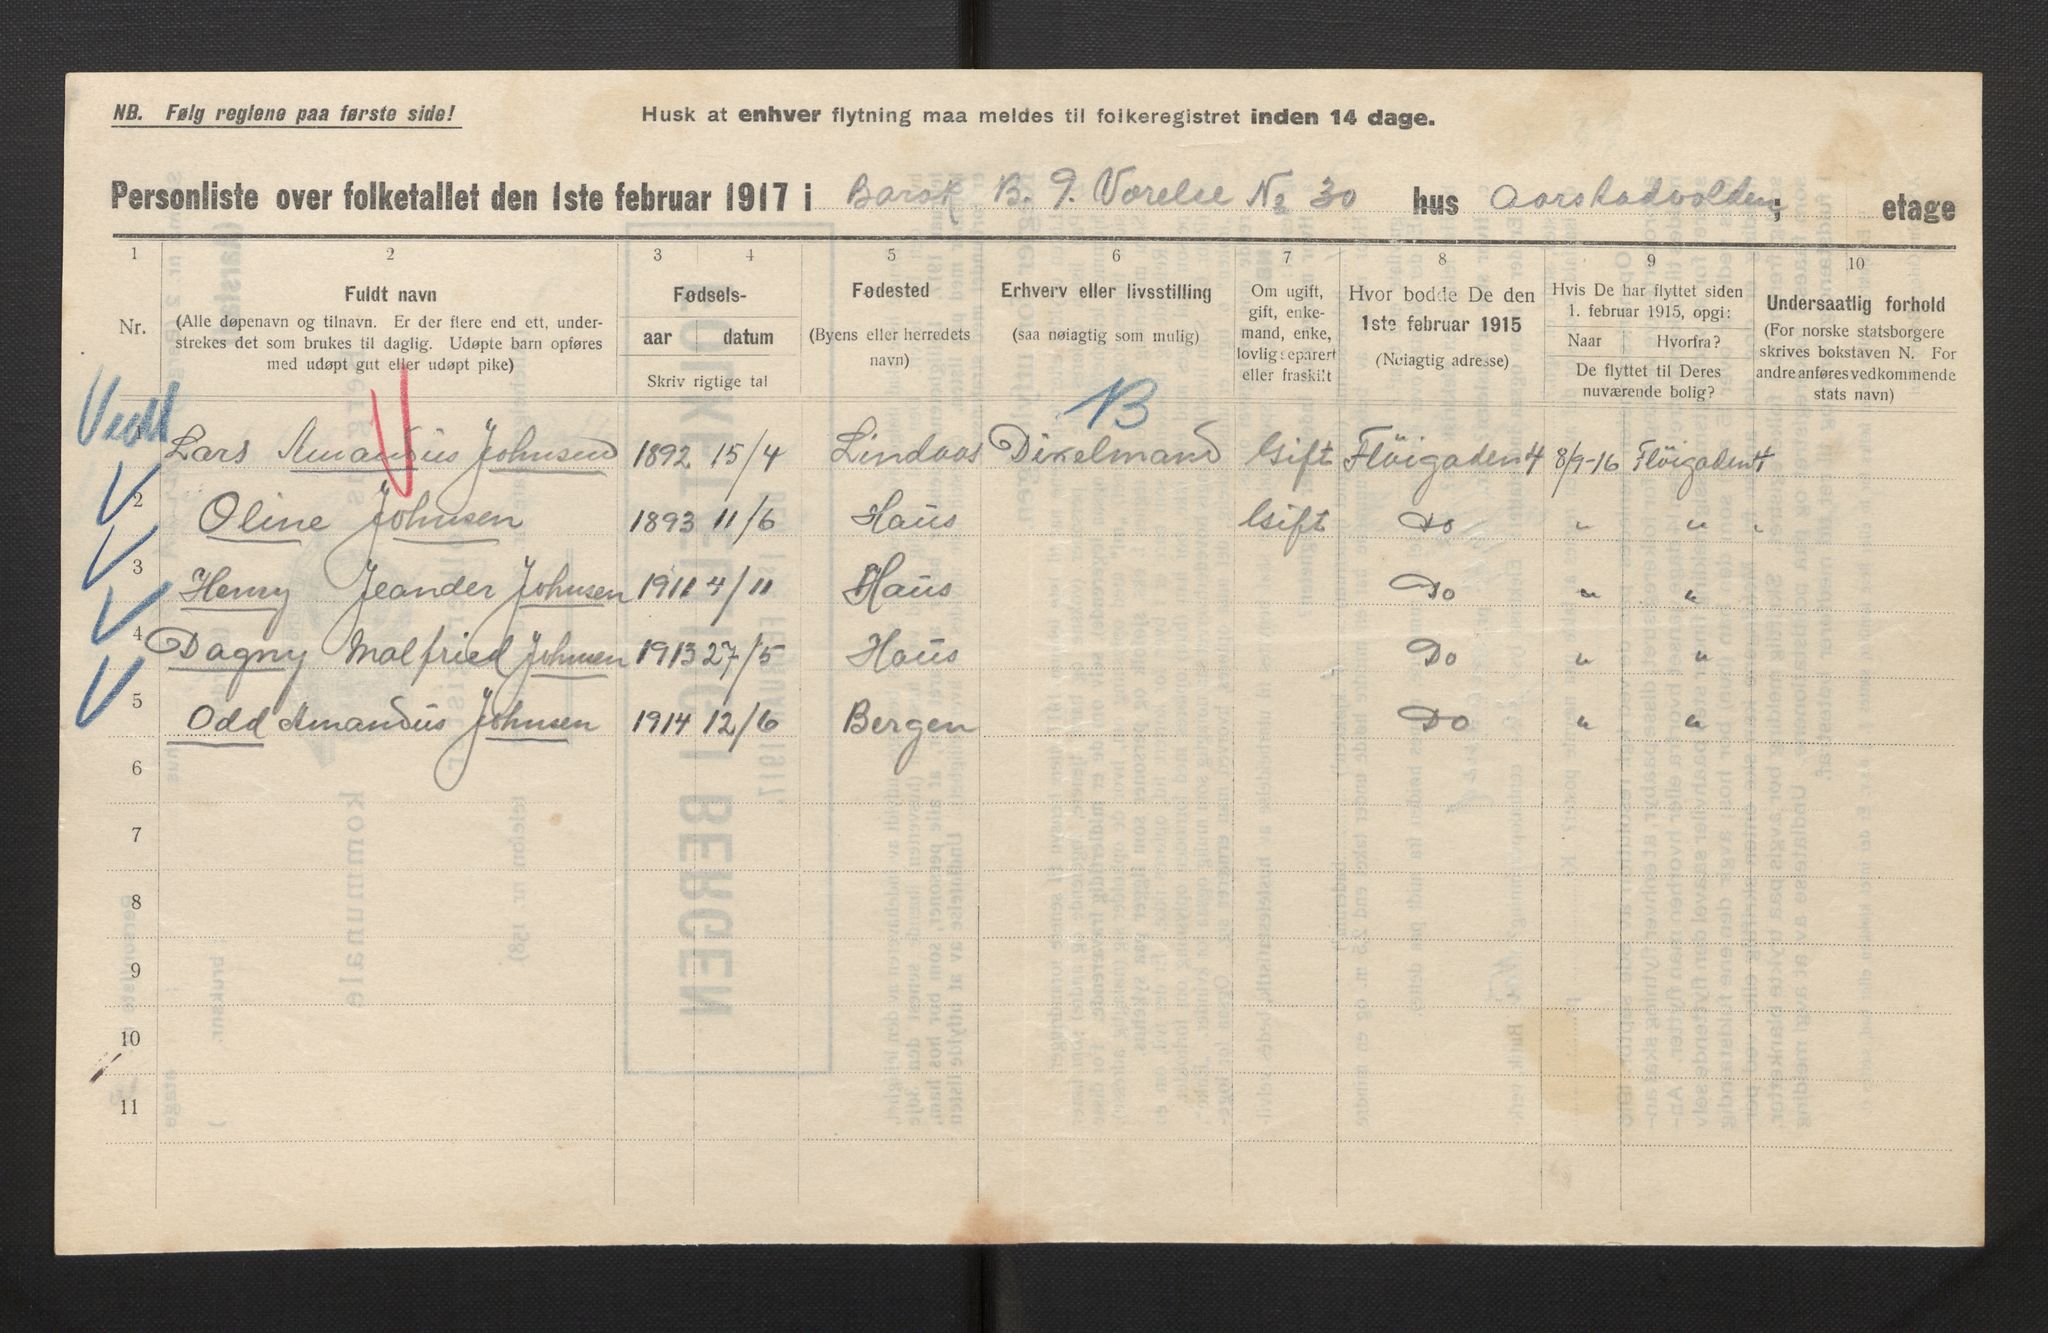 NB. Følg reglene paa første side!
Husk at enhver flytning maa meldes til folkeregistret inden 14 dage.
Personliste over folketallet den 1ste februar 1917 i Barak B. 9. Værelse No 30 hus Aarstadvolden; etage
1 2 3 4 5 6 7 8 9 10
Nr.
Fuldt navn
(Alle døpenavn og tilnavn. Er der flere end ett, under-
strekes det som brukes til daglig. Udøpte barn opføres
med udøpt gut eller udøpt pike)
Fødsels-
aar datum
Skriv rigtige tal
Fødested
(Byens eller herredets
navn)
Erhverv eller livsstilling
(saa nøiagtig som mulig)
Om ugift,
gift, enke-
mand, enke,
lovlig separert
eller fraskilt
Hvor bodde De den
1ste februar 1915
(Nøiagtig adresse)
Hvis De har flyttet siden
1. februar 1915, opgi:
Naar Hvorfra?
De flyttet til Deres
nuværende bolig?
Undersaatlig forhold
(For norske statsborgere
skrives bokstaven N. For
andre anføres vedkommende
stats navn)
B
Lars Amandus Johnsen 1892 15/4 Lindaas Dixelmand Gift Fløigaden 4 8/9-16 Fløigaden 4
2 Oline Johnsen 1893 11/6 Haus Gift Do " " "
3 Henry Jeander Johnsen 1911 4/11 Haus Do " "
4 Dagny Malfried Johnsen 1913 27/5 Haus Do " "
5 Odd Amandus Johnsen 1914 12/6 Bergen Do " "
6
7
8
9
10
11